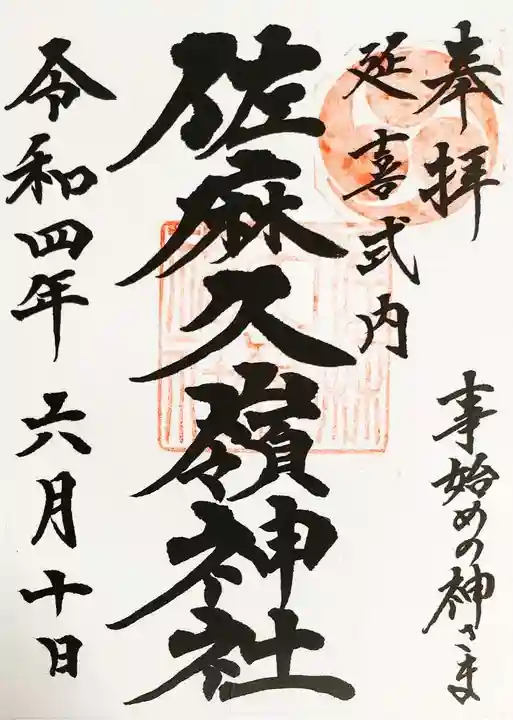 奉拝
延喜式内
事始めの神さま
佐麻久嶺神社
令和四年六月十日